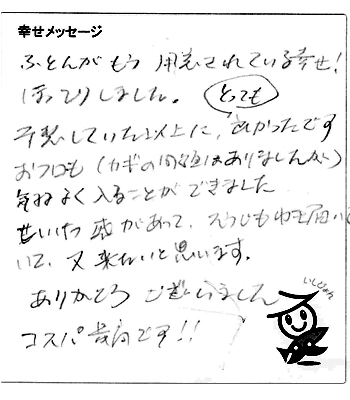 幸せメッセージ
ふとんがもう用意されている幸せ!
ほっこりしました。とっても
予想していた以上に、よかったです
おフロも(カギの問題はありましたが)
気持よく入ることができました
せいけつ感があって、そうじもゆき届いて
いて、又来たいと思います。
ありがとうございました
コスパ最高です!!